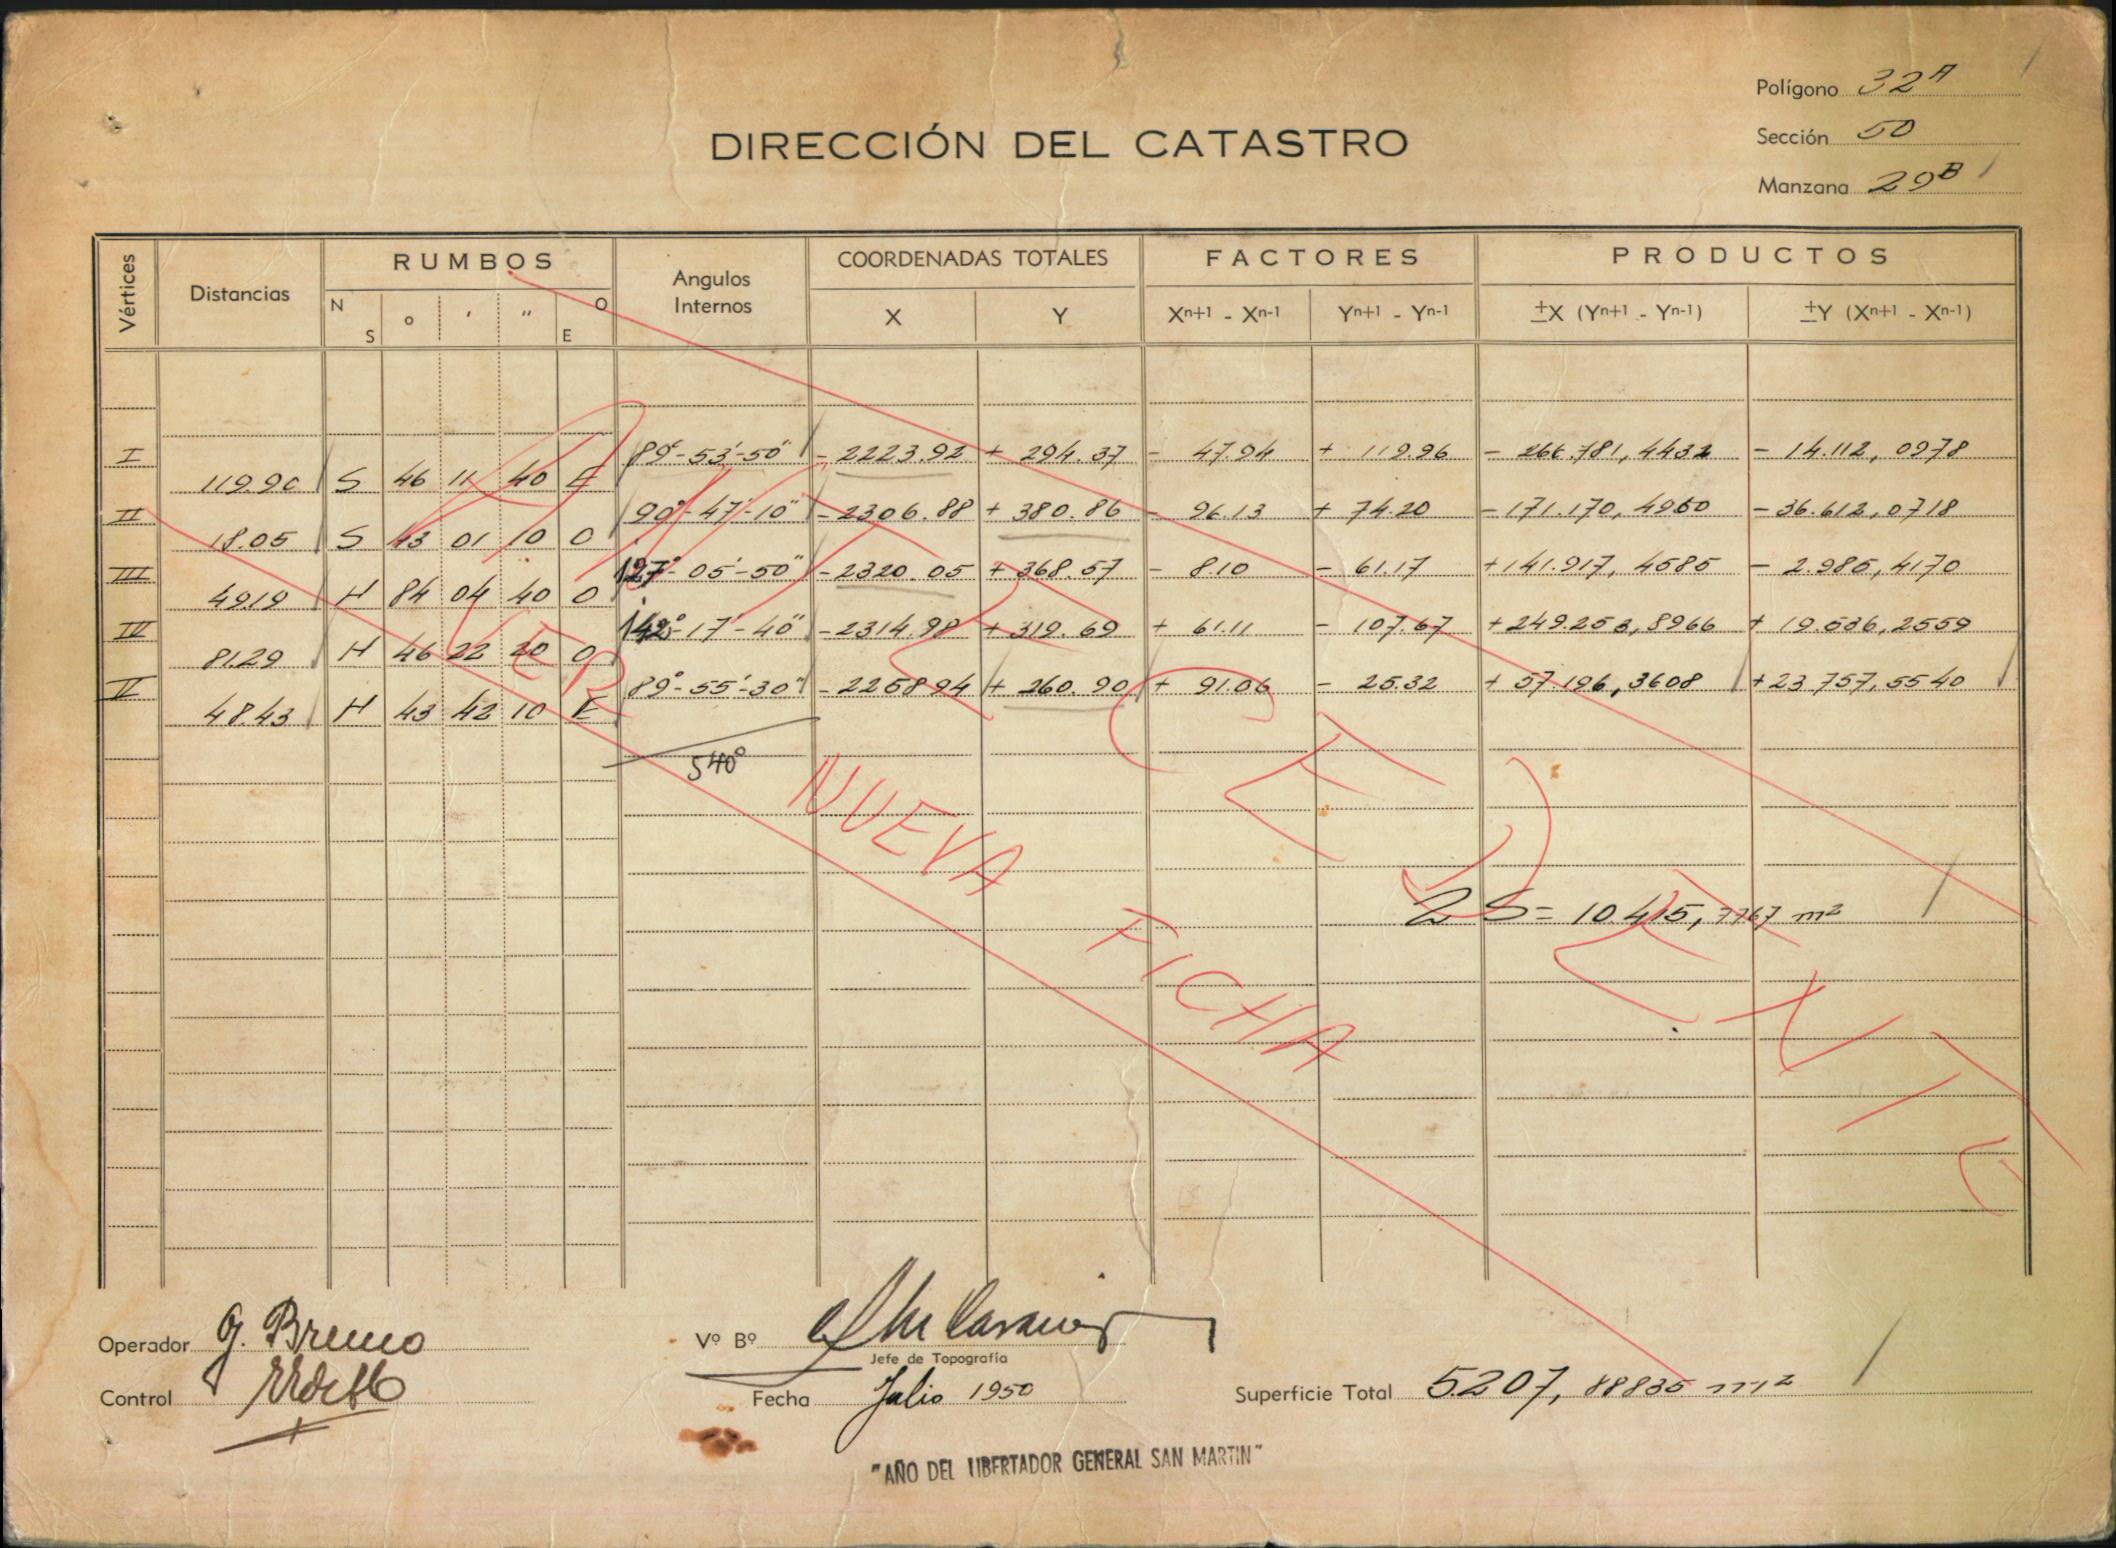 Polígono 32A
Sección 50
Manzana 29B
DIRECCIÓN DEL CATASTRO
Vértices Distancias RUMBOS Angulos Internos COORDENADAS TOTALES FACTORES PRODUCTOS
N S o ' " E O X Y Xn+1 - Xn-1 Yn+1 - Yn-1 ±X (Yn+1 - Yn-1) ±Y (Xn+1 - Xn-1)
I 89°-53'-50" - 2223.92 + 294.37 - 47.94 + 119.96 - 266.781,4432 - 14.112,0978
119.90 S 46 11 40 E
II 90°-47'-10" - 2306.88 + 380.86 - 96.13 + 74.20 - 171.170,4960 - 36.612,0718
18.05 S 43 01 10 O
III 127°-05'-50" - 2320.05 + 368.57 - 8.10 - 61.17 + 141.917,4585 - 2.985,4170
49.19 N 84 04 40 O
IV 142°-17'-40" - 2314.98 + 319.69 + 61.11 - 107.67 + 249.253,8966 + 19.536,2559
81.29 N 46 22 20 O
V 89°-55'-30" - 2258.94 + 260.90 + 91.06 - 25.32 + 57.196,3608 + 23.757,5540
48.43 N 43 42 10 E
540°
VER NUEVA FICHA
2 S = 10.415,7767 m²
Operador G. Bruno
Control
Vº Bº
Jefe de Topografía
Fecha Julio 1950
Superficie Total 5207,88835 m²
"AÑO DEL LIBERTADOR GENERAL SAN MARTIN"